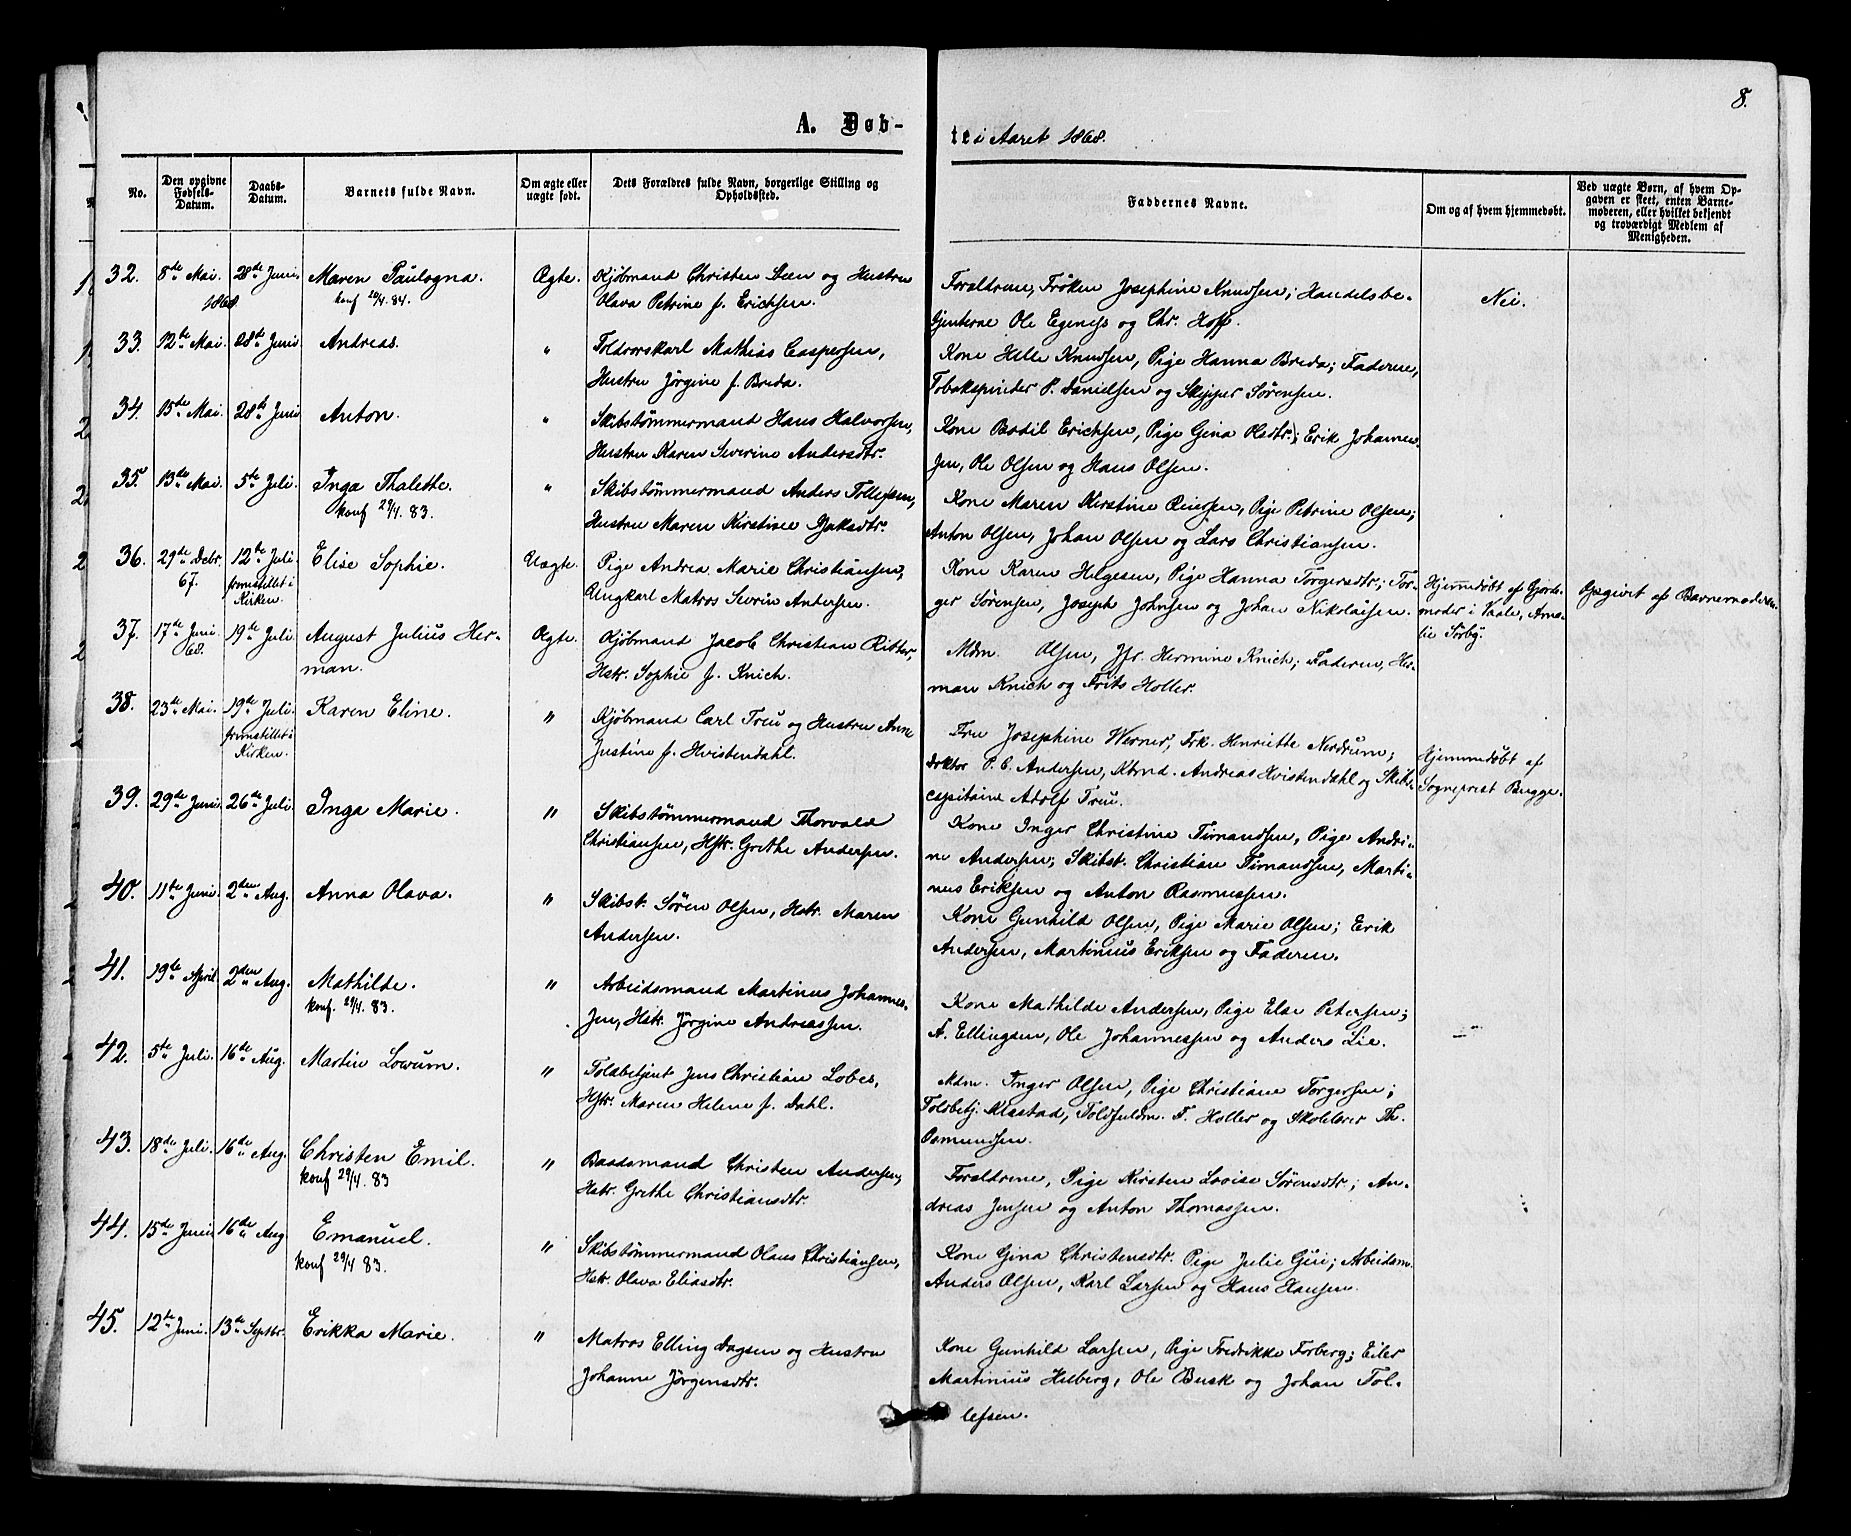 8.
A. Døb-
te i Aaret 1868.
No.
Den opgivne Fødsels-Datum.
Daabs-Datum.
Barnets fulde Navn.
Om ægte eller uægte født.
Dets Forældres fulde Navn, borgerlige Stilling og Opholdssted.
Faddernes Navne.
Om og af hvem hjemmedøbt.
Ved uægte Børn, af hvem Op-
gaven er skeet, enten Barne-
moderen, eller hvilket bekjendt
og troværdigt Medlem af
Menigheden.
32. 8de Mai 1868 28de Juni Maren Paulogna. Ægte. Kjøbmand Christen Steen og Hustru
konf 20/4. 84. Olava Petrine f. Erichsen.
Foraldrene, Frøken Josephine Knudsen; Handelsbe-
tjenterne Ole Egeness og Chr. Hoff. Nei.
33. 12te Mai. 28de Juni Andreas. " Toldrorskarl Mathias Caspersen,
Hustru Jörgine f. Breda.
Kone Helle Knudsen, Pige Hanna Breda; Faderen,
Tobakspinder P. Danielsen og Skipper Sörensen.
34. 15de Mai. 28de Juni Anton. " Skibstømmermand Hans Halvorsen,
Hustru Karen Severine Andersdtr.
Kone Bodil Erichsen, Pige Gina Olsdtr.; Erik Johannes-
sen, Ole Olsen og Hans Olsen.
35. 13de Mai. 5te Juli. Inga Thalette. " Skibstømmermand Anders Tollefsen,
konf 29/4. 83. Hustru Maren Kirstine Isaksdtr.
Kone Maren Kirstine Reiersen, Pige Petrine Olsen;
Anton Olsen, Johan Olsen og Lars Christiansen.
36. 29de Decbr. 67. 12te Juli. fremstillet i Kirken. Elise Sophie. Uægte. Pige Andrea Marie Christiansen,
Ungkarl Matros Severin Andersen.
Kone Karen Helgesen, Pige Hanna Torgersdtr.; Tor-
ger Sörensen, Joseph Johnsen og Johan Nikolaisen.
Hjemmedøbt af Gjord-
moder i Vaale, Ama-
lie Sørby.
Opgivet af Barnemoderen.
37. 17de Juni 68. 19de Juli August Julius Her-
man. Ægte. Kjøbmand Jacob Christian Ritter,
Hstr. Sophie f. Knich.
Mdm. Olsen, Jfr. Hermine Knich; Faderen, Her-
man Knich og Frits Holler.
38. 23de Mai. 19de Juli. fremstillet i Kirken. Karen Eline. " Kjøbmand Carl Treu og Hustru Anne
Justine f. Hvistendahl.
Fru Josephine Werner, Frk. Henriette Nerdrum;
Doktor P. C. Andersen, Kbmd. Andreas Hvistendahl og Skibs-
capitaine Adolf Treu.
Hjemmedøbt af
Sogneprest Bugge.
39. 29de Juni 26de Juli Inga Marie. " Skibstømmermand Thorvald
Christiansen, Hstr. Grethe Andersen.
Kone Inger Christine Timandsen, Pige Andri-
ne Andersen; Skibst. Christian Timandsen, Marti-
nus Eriksen og Anton Rasmussen.
40. 11te Juni. 2den Aug. Anna Olava. " Skibst. Søren Olsen, Hstr. Maren
Andersen.
Kone Gunhild Olsen, Pige Marie Olsen; Erik
Andersen, Martinius Eriksen og Faderen.
41. 19de April 2den Aug. Mathilde. " Arbeidsmand Martinus Johannes-
konf. 29/4. 83. sen, Hstr. Jörgine Andreassen.
Kone Mathilde Andersen, Pige Else Petersen;
A. Ellingsen, Ole Johannessen og Anders Lie.
42. 5te Juli. 16de Aug. Martin Lovum. " Toldbetjent Jens Christian Lobes,
Hstr. Maren Helene f. Dahl.
Mdm. Inger Olsen, Pige Christiane Torgersen;
Toldbetj. Kisstad, Toldfuldm. F. Holler og Skolelærer Th.
Osmundsen.
43. 18de Juli. 16de Aug. Christen Emil. " Baadsmand Christen Andersen,
konf 29/4. 83 Hstr. Grethe Christiansdtr.
Foraldrene, Pige Kirsten Lovise Sörensdtr.; An-
dreas Jensen og Anton Thomassen.
44. 15de Juni 16de Aug Emanuel. " Skibstømmermand Olaus Christiansen,
konf 29/4 83. Hstr. Olava Eliasdtr.
Kone Gina Christensdtr. Pige Julie Giri; Arbeidsm.
Anders Olsen, Karl Larsen og Hans Hansen.
45. 12te Juni. 13de Septbr. Erikka Marie. " Matros Elling Dagsen og Hustru
Johanne Jörgensdtr.
Kone Gunhild Larsen, Pige Fredrikke Forberg; Eiler
Martinius Helberg, Ole Busk og Johan Tol-
lefsen.